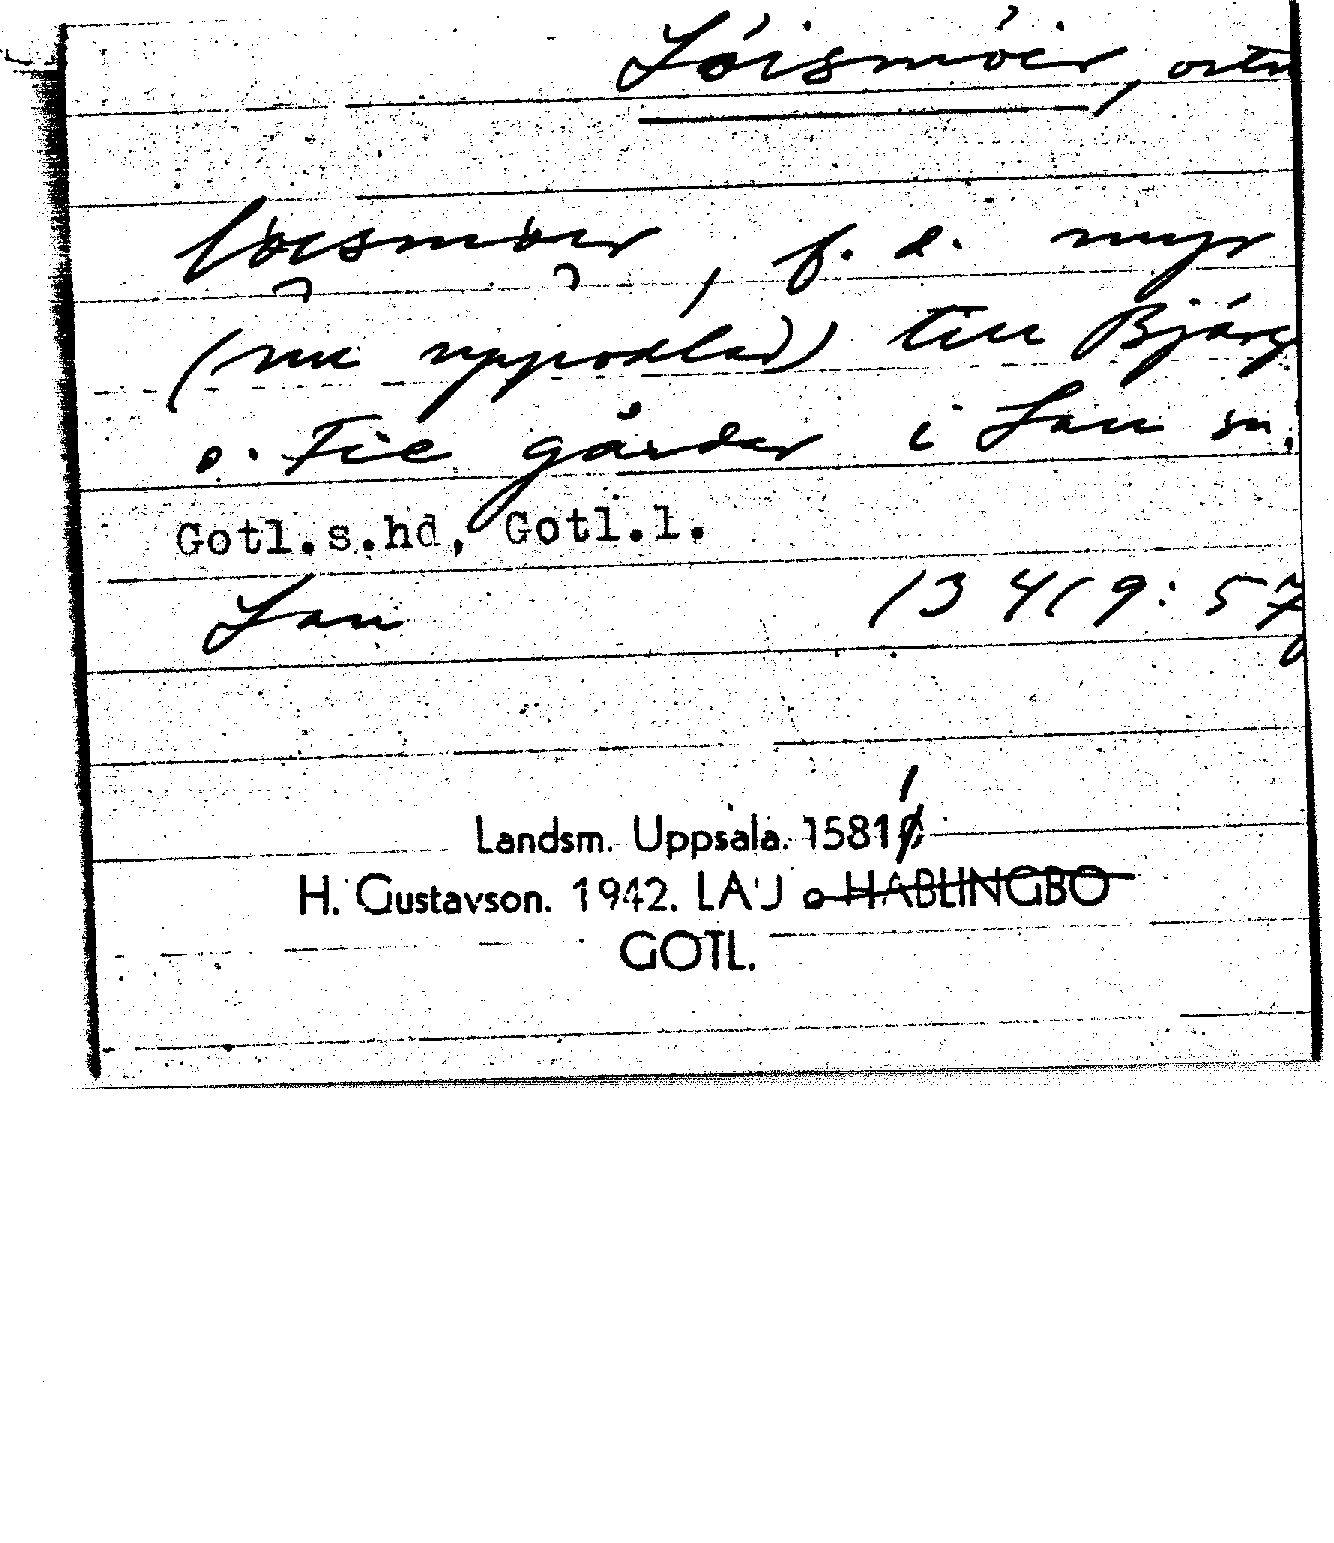 Lóismòir, ortn
lòismòir, f. d. myr
(nu uppodlad) till Bjärg
o. Fie gårdar i Lau sn.
Gotl.s.hd, Gotl.l.
Lau 13 4/9: 57
Landsm. Uppsala. 15811
H. Gustavson. 1942. LAU o HABLINGBO
GOTL.